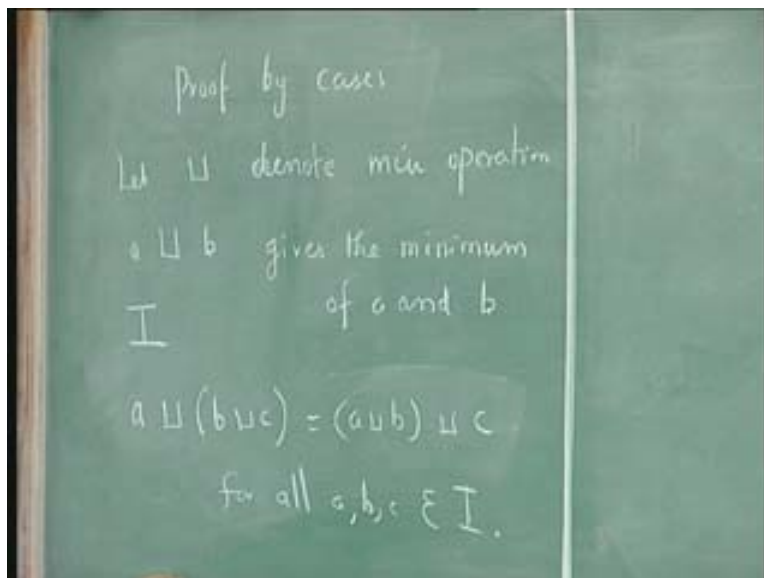 Proof by cases
Let ⊔ denote min operation
a ⊔ b gives the minimum
of a and b
I
a ⊔ (b ⊔ c) = (a ⊔ b) ⊔ c
for all a, b, c ∈ I.